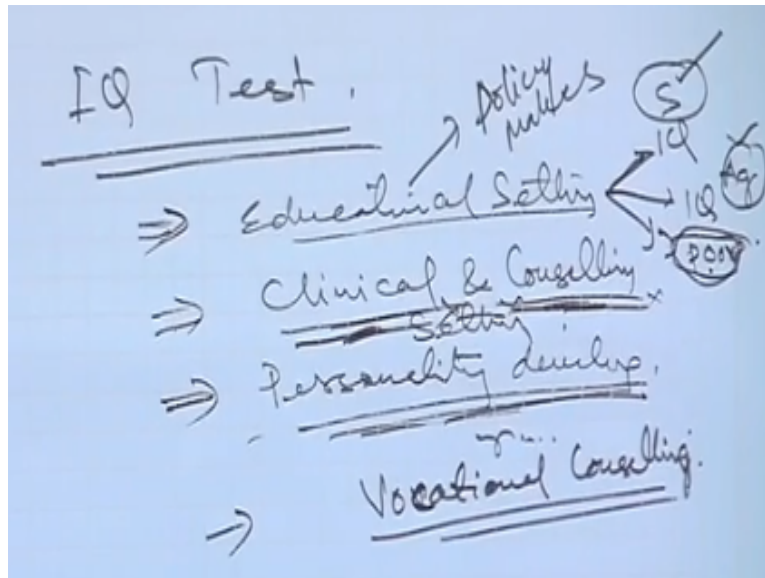 IQ Test.
Policy
makers
S
IQ
Educational Setting
IQ
Poor
Clinical & Couselling
Setting
Personality develop.
Vocational Couselling.